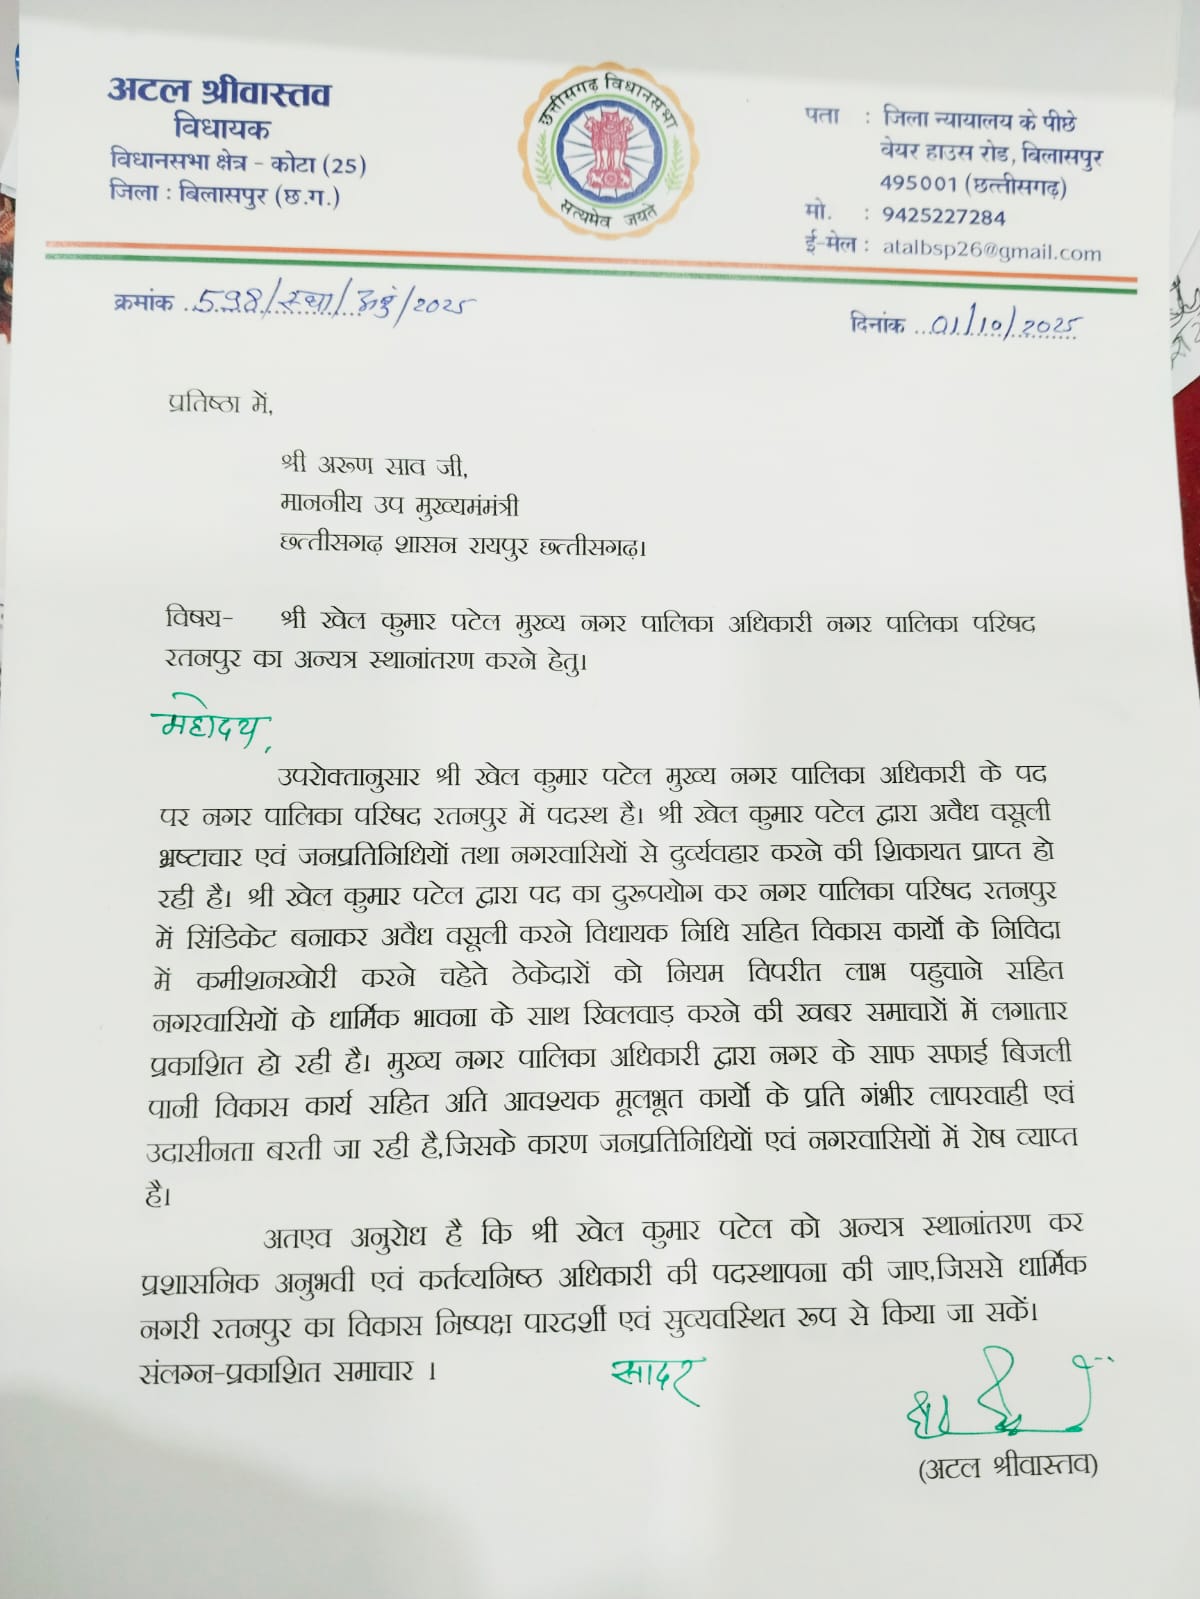 अटल श्रीवास्तव
विधायक
विधानसभा क्षेत्र - कोटा (25)
जिला : बिलासपुर (छ.ग.)
छत्तीसगढ़ विधानसभा
सत्यमेव जयते
पता : जिला न्यायालय के पीछे
वेयर हाउस रोड, बिलासपुर
495001 (छत्तीसगढ़)
मो. : 9425227284
ई-मेल : atalbsp26@gmail.com
क्रमांक 598/स्था/अनु/2025
दिनांक 01/10/2025
प्रतिष्ठा में,
श्री अरूण साव जी,
माननीय उप मुख्यमंमंत्री
छत्तीसगढ़ शासन रायपुर छत्तीसगढ़।
विषय- श्री खेल कुमार पटेल मुख्य नगर पालिका अधिकारी नगर पालिका परिषद
रतनपुर का अन्यत्र स्थानांतरण करने हेतु।
महोदय,
उपरोक्तानुसार श्री खेल कुमार पटेल मुख्य नगर पालिका अधिकारी के पद
पर नगर पालिका परिषद रतनपुर में पदस्थ है। श्री खेल कुमार पटेल द्वारा अवैध वसूली
भ्रष्टाचार एवं जनप्रतिनिधियों तथा नगरवासियों से दुर्व्यवहार करने की शिकायत प्राप्त हो
रही है। श्री खेल कुमार पटेल द्वारा पद का दुरूपयोग कर नगर पालिका परिषद रतनपुर
में सिंडिकेट बनाकर अवैध वसूली करने विधायक निधि सहित विकास कार्यो के निविदा
में कमीशनखोरी करने चहेते ठेकेदारों को नियम विपरीत लाभ पहुचाने सहित
नगरवासियों के धार्मिक भावना के साथ खिलवाड़ करने की खबर समाचारों में लगातार
प्रकाशित हो रही है। मुख्य नगर पालिका अधिकारी द्वारा नगर के साफ सफाई बिजली
पानी विकास कार्य सहित अति आवश्यक मूलभूत कार्यो के प्रति गंभीर लापरवाही एवं
उदासीनता बरती जा रही है,जिसके कारण जनप्रतिनिधियों एवं नगरवासियों में रोष व्याप्त
है।
अतएव अनुरोध है कि श्री खेल कुमार पटेल को अन्यत्र स्थानांतरण कर
प्रशासनिक अनुभवी एवं कर्तव्यनिष्ठ अधिकारी की पदस्थापना की जाए,जिससे धार्मिक
नगरी रतनपुर का विकास निष्पक्ष पारदर्शी एवं सुव्यवस्थित रूप से किया जा सकें।
संलग्न-प्रकाशित समाचार ।
सादर
(अटल श्रीवास्तव)